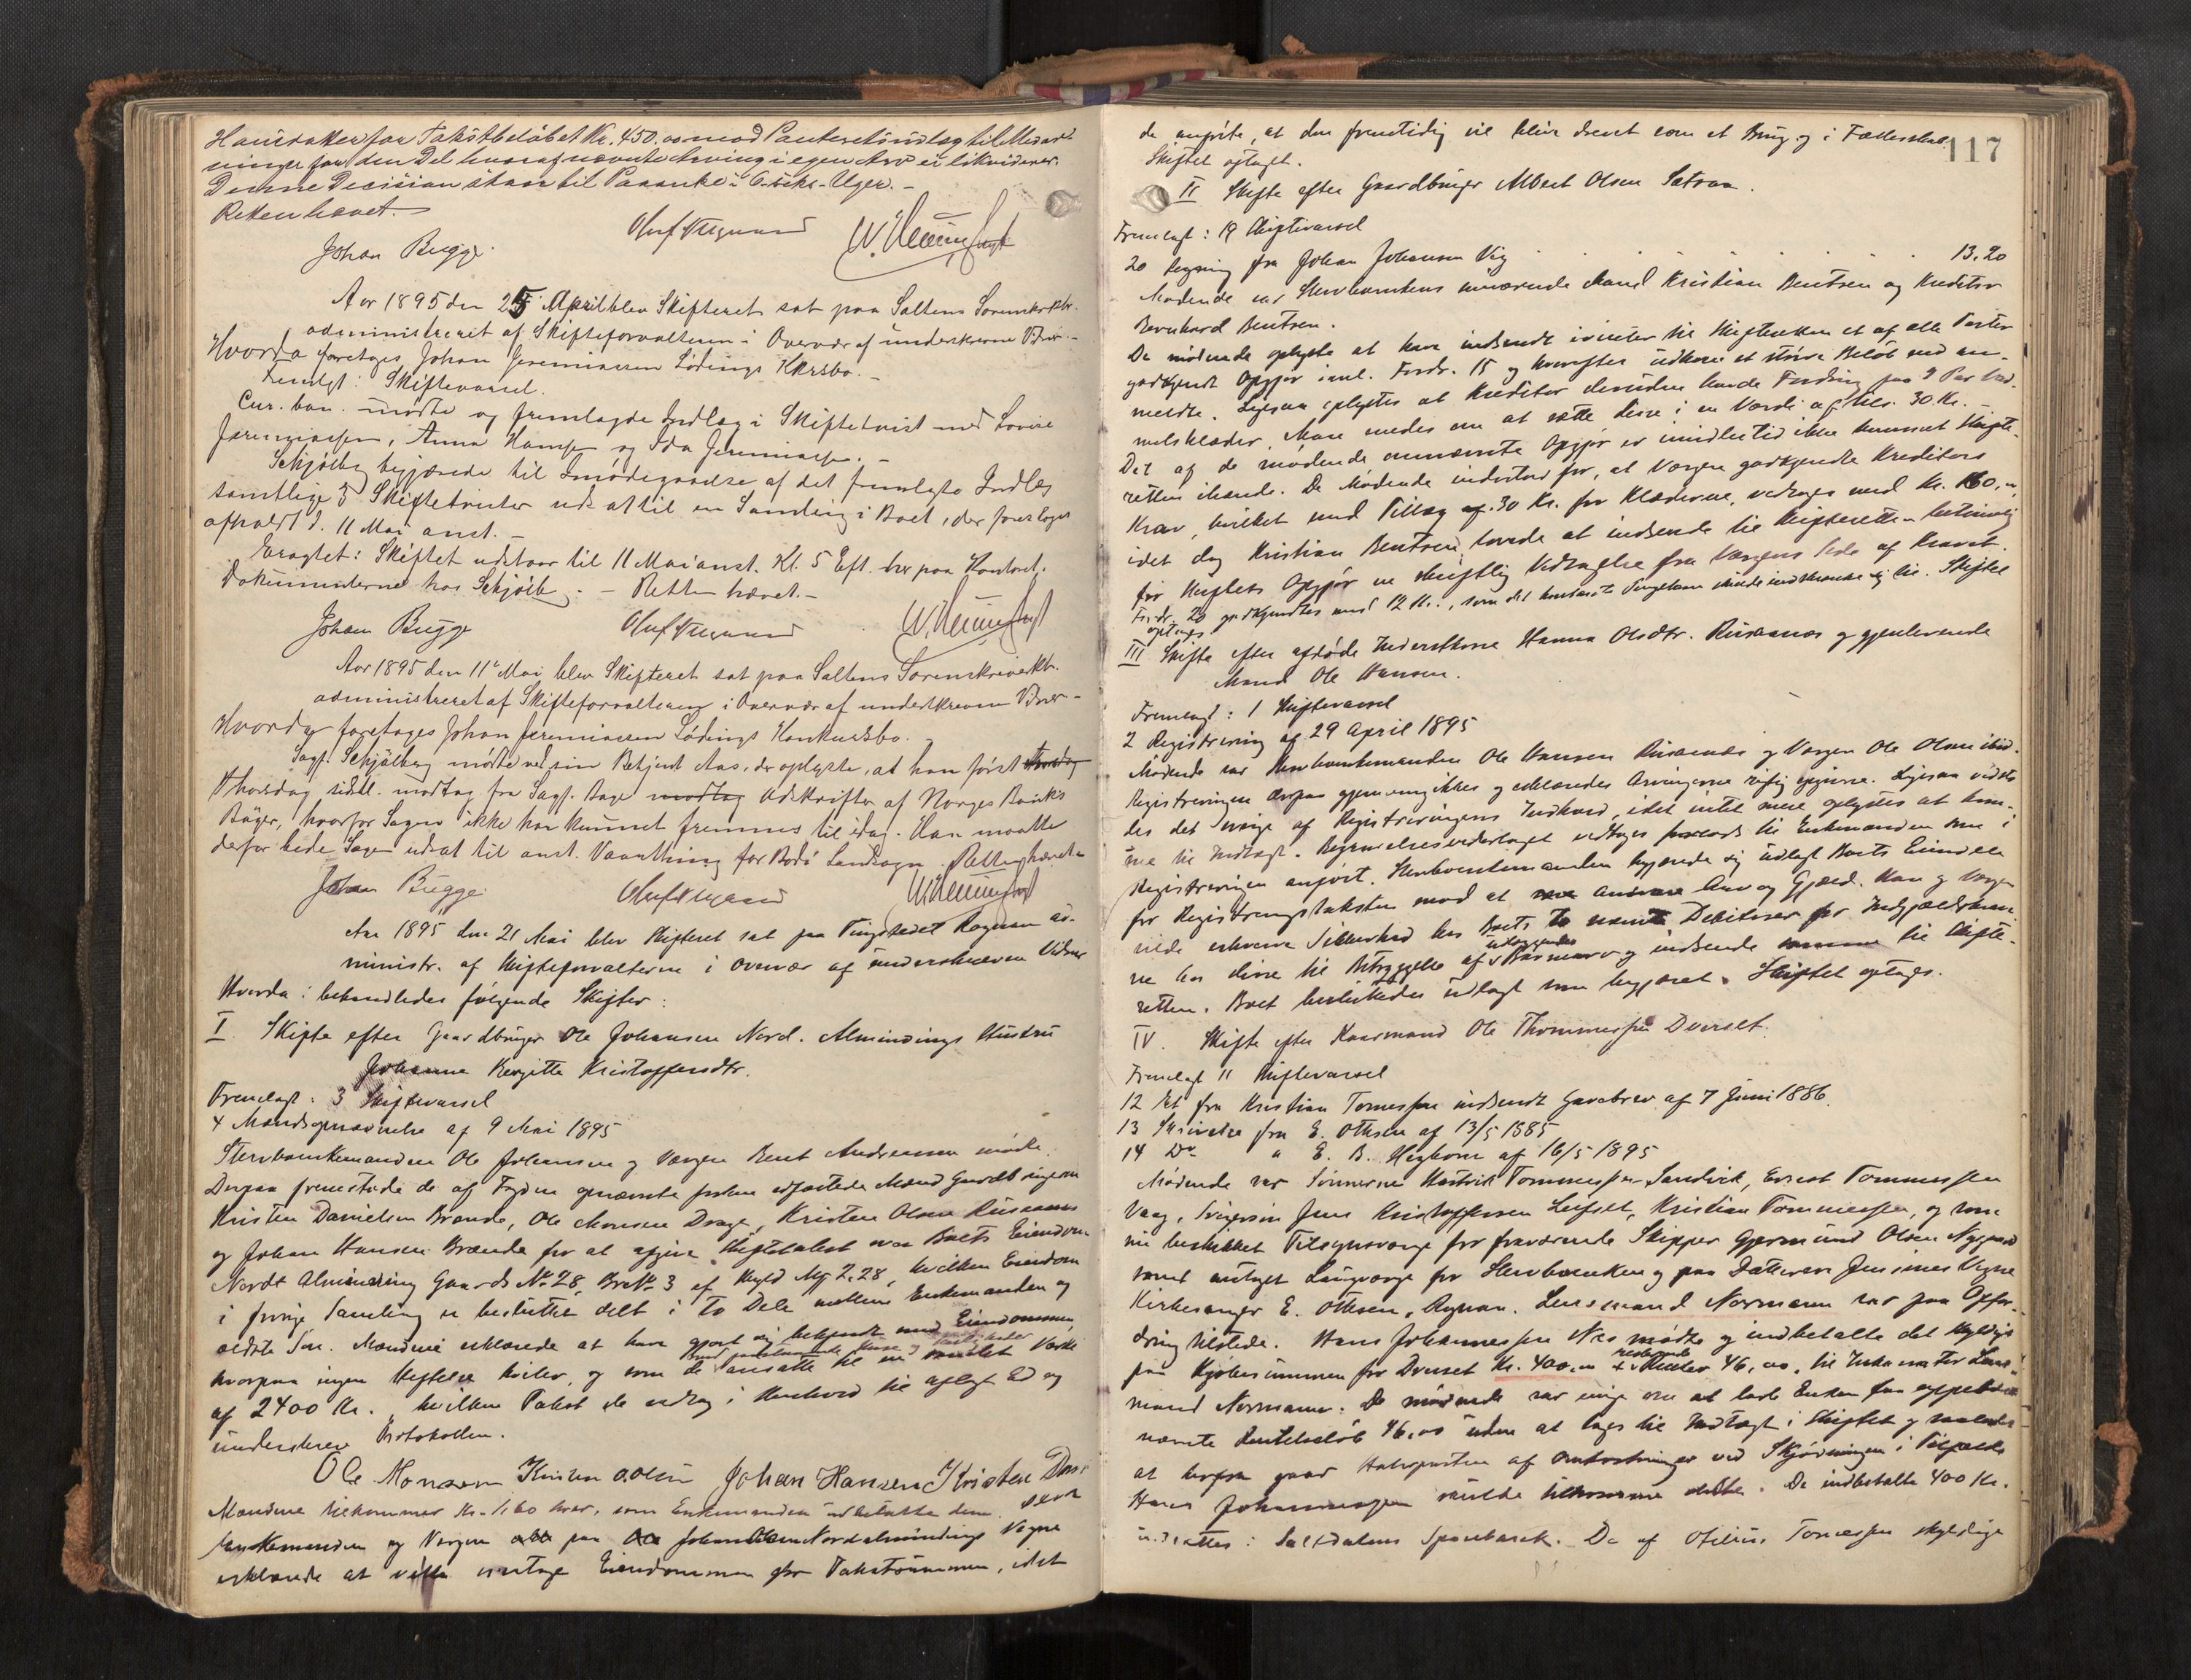 for Takstbeløbet Kr. 450.00 mod Panteretsindlæg til Medarv-
ninger for den Del hvoraf nævnte Arving i egen Arv ei likviderer.
Denne Decision staar til Paaanke i 6-seks-Uger.-
Retten hævet.-
Johan Bugge.
Aar 1895 den 25 April blev Skifteret sat paa Saltens Sorenskrivktr.
administreret af Skifteforvalteren i Overvær af underskrevne Vidner.-
Hvorda foretoges Johan Jeremiassen Lødings Kksbo.-
Fremlagt: Skiftevarsel.
Cur. bon. mødte og fremlagde Indlæg i Skiftetvist med Lovise
Jeremiassen, Anna Hansen og Ida Jeremiassen.-
Schjølberg begjærede til Imødegaaelse af det fremlagte Indlæg
samtlige 3 Skiftetvister udsat til en Samling i Boet, der foresloges
afholdt d. 11 Mai anst.-
Eragtet: Skiftet udstaar til 11 Mai anst. Kl. 5 Eft. her paa Kontoret.
Dokumenterne hos Schjølbg.- Retten hævet.-
Johan Bugge
Aar 1895 den 11te Mai blev Skifteret sat paa Saltens Sorenskriverktr.
administreret af Skifteforvalteren i Overvær af underskrevne Vidner-
Hvorda foretoges Johan Jeremiassen Lødings Konkursbo.-
Sagf. Schjølberg mødte ved sin Betjent Aas, der oplyste, at han først
Thorsdag sidstl. modtog fra Sagf. Bage modtog Udskrifter af Norges Banks
Bøger, hvorfor Sagen ikke har kunnet fremmes til idag. Han maatte
derfor bede Sagen udsat til anst. Vaarthing for Bodø Landsogn. Retten hævet.-
Johan Bugge
Aar 1895 den 21 Mai blev Skifteret sat paa Tingstedet Rognan ad-
ministr. af Skifteforvalteren i Overvær af underskrevne Vidner
Hvorda behandledes følgende Skifter:
I Skifte efter Gaardbruger Ole Johansen Nord. Almindings Hustru
Johanna Bergitte Kristoffersdtr.
Fremlagt: 3 Skiftevarsel
4 Mandsopnævnelse af 9 Mai 1895
Stervboenkemanden Ole Johansen og Værgen Bent Andreassen mødte.
Derpaa fremstode de af Fogden opnævnte forhen edfæstede Mænd Gaardbrugerne
Kristen Danielsen Brænde, Ole Monsen Drage, Kristen Olsen Rusaanes
og Johan Hansen Brænde for at afgive Skiftetakst over Boets Eiendom
Nordr Alminding Gaards No 28, Brs No 3 af Skyld Mk 2.28, hvilken Eiendom
i forrige Samling er besluttet delt i to Dele mellem Enkemanden og
ældste Søn. Mændene erklærede at have gjort sig bekjendt med Eiendommen
hvorpaa ingen Heftelse hviler, og som de ansatte til en samlet Værdi
af 2400 Kr., hvilken Takst de vedtog i Henhold til aflagt Ed og
underskrev Protokollen.
Ole Monsen Kristen Olsen Johan Hansen Kristen Dan
Mændene tilkommer Kr. 1,60 hver, som Enkemanden udbetalte dem.
Enkemanden og Værgen paa Johan Olsen Nordalmindings Vegne
erklærede at ville modtage Eiendommen for Takstsummen, idet
117
de anførte, at den fremtidig vil blive drevet som et Brug og i Fællesskab.
Skiftet optaget.
II Skifte efter Gaardbruger Albert Olsen Sætran.
Fremlagt: 19 Skiftevarsel
20 Regning fra Johan Johansen Vig 13.20
Mødende var Stervboenkens nuværende Mand Kristian Bentsen og Kreditor
Bernhard Bentsen.
De mødende oplyste at have indsendt til Skifteretten et af alle Parter
godkjendt Opgjør incl. Fordr. 15 og hvorefter udkom et større Beløb end an-
meldte. Ligesaa oplystes at Kreditor desuden havde Fordring paa 2 Par
. Man enedes om at sætte disse i en Værdi af tils. 30 Kr.-
Det af de mødende omnævnte Opgjør er imidlertid ikke kommet Skifte-
retten ihænde. De Mødende indestod for, at Værgen godkjendte Kreditors
Krav, hvilket med Tillæg af 30 Kr. for Klæderne, vedtoges med Kr.
idet dog Kristian Bentsen lovede at indsende til Skifteretten betimelig
før Skiftets Opgjør en skriftlig Vedtagelse fra Værgens Side af Kravet.
Fordr. 20 godkjendtes med 12 Kr., som det kontante skulde indskrænke sig til. Skiftet
optages
III Skifte efter afdøde Inderstkone Hanna Olsdtr. Rusaanes og gjenlevende
Mand Ole Hansen.
Fremlagt: 1 Skiftevarsel
2 Registrering af 29 April 1895
Mødende var Stervboenkemanden Ole Hansen Rusaanes og Værgen Ole Olsen ibid.
Registreringen derpaa gjennemgikkes og erklæredes Arvingerne rigtig opgivne. Ligesaa vedtoges
det øvrige af Registreringens Indhold, idet intet mere oplystes at kom-
me til Indtægt. Begravelsesvederlaget vedtoges til Enkemanden som i
Registreringen anført. Stervboenkemanden begjærede sig udlagt Boets Eiendele
for Registreringstaksten mod at Arv og Gjæld. Han og Værgen
vilde erhverve Sikkerhed hos Boets to nævnte Debitorer for Indgjældskrav
hos disse til Betryggelse af Børnearv og indsende til Skifte-
retten. Boet besluttedes udlagt som begjæret. Skiftet optages.
IV. Skifte efter Kaarmand Ole Thommessen Dverset.
Fremlagt 11 Skiftevarsel
12 Et fra Kristian Tomessen indsendt Gavebrev af 7 Juni 1886.
13 Skrivelse fra E. Othsen af 13/5 1885
14 Do " E. B. af 16/5 1895
Mødende var Sønnerne Hartvik Tommessen Sandvik, Ernst Tommessen
Vaag, Svigersøn Jens Kristoffersen Leifset, Kristian Tommessen, og som
nu beskikket Tilsynsværge for fraværende Skipper Gjermund Olsen Nygaard
samt antaget Laugværge for Stervboenken og paa Datteren Jensines Vegne
Kirkesanger E. Othsen, Rognan. Lensmand Normann var paa Opfor-
dring tilstede. Hans Johannessen Næs mødte og indbetalte det skyldige
paa Kjøbesummen for Dverset Kr. 400,00 + resterende Renter 46,00, til Lens-
mand Normann. De mødende var enige om at lade Enken faa oppebære
nævnte Rentebeløb 46,00 uden at tages til Indtægt i Skiftet og saaledes
at herfra gaar Halvparten af Omkostninger ved Skjødningen i Tilfælde
Hans Johannessen skulde . De indbetalte 400 Kr.
indsættes i Saltdalens Sparebank. De af Ofilius Tomessen skyldige